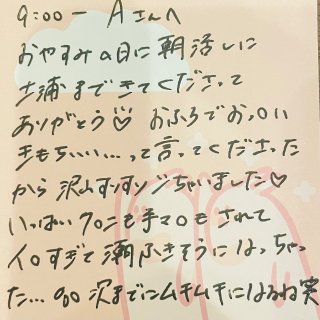 9:00 – Aさんへ
おやすみの日に朝活しに
土浦まできてくださって
ありがとう♡ おふろでおっ〇い
きもちいい…って言ってくださった
から沢山すりすりしちゃいました♡
いっぱいク〇ニも手マ〇もされて
イ〇すぎて潮ふきそうにはっちゃっ
た… 次までにムキムキになるね笑